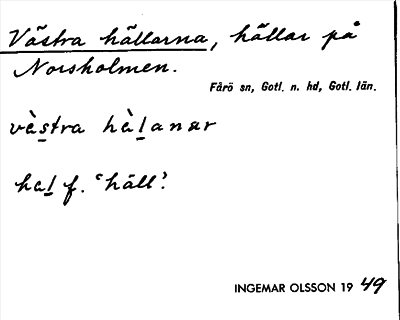 Västra hällarna, hällar på
Norsholmen.
Fårö sn, Gotl. n. hd, Gotl. län.
vèstra hèlanar
hel f. ‘häll’.
INGEMAR OLSSON 19 49